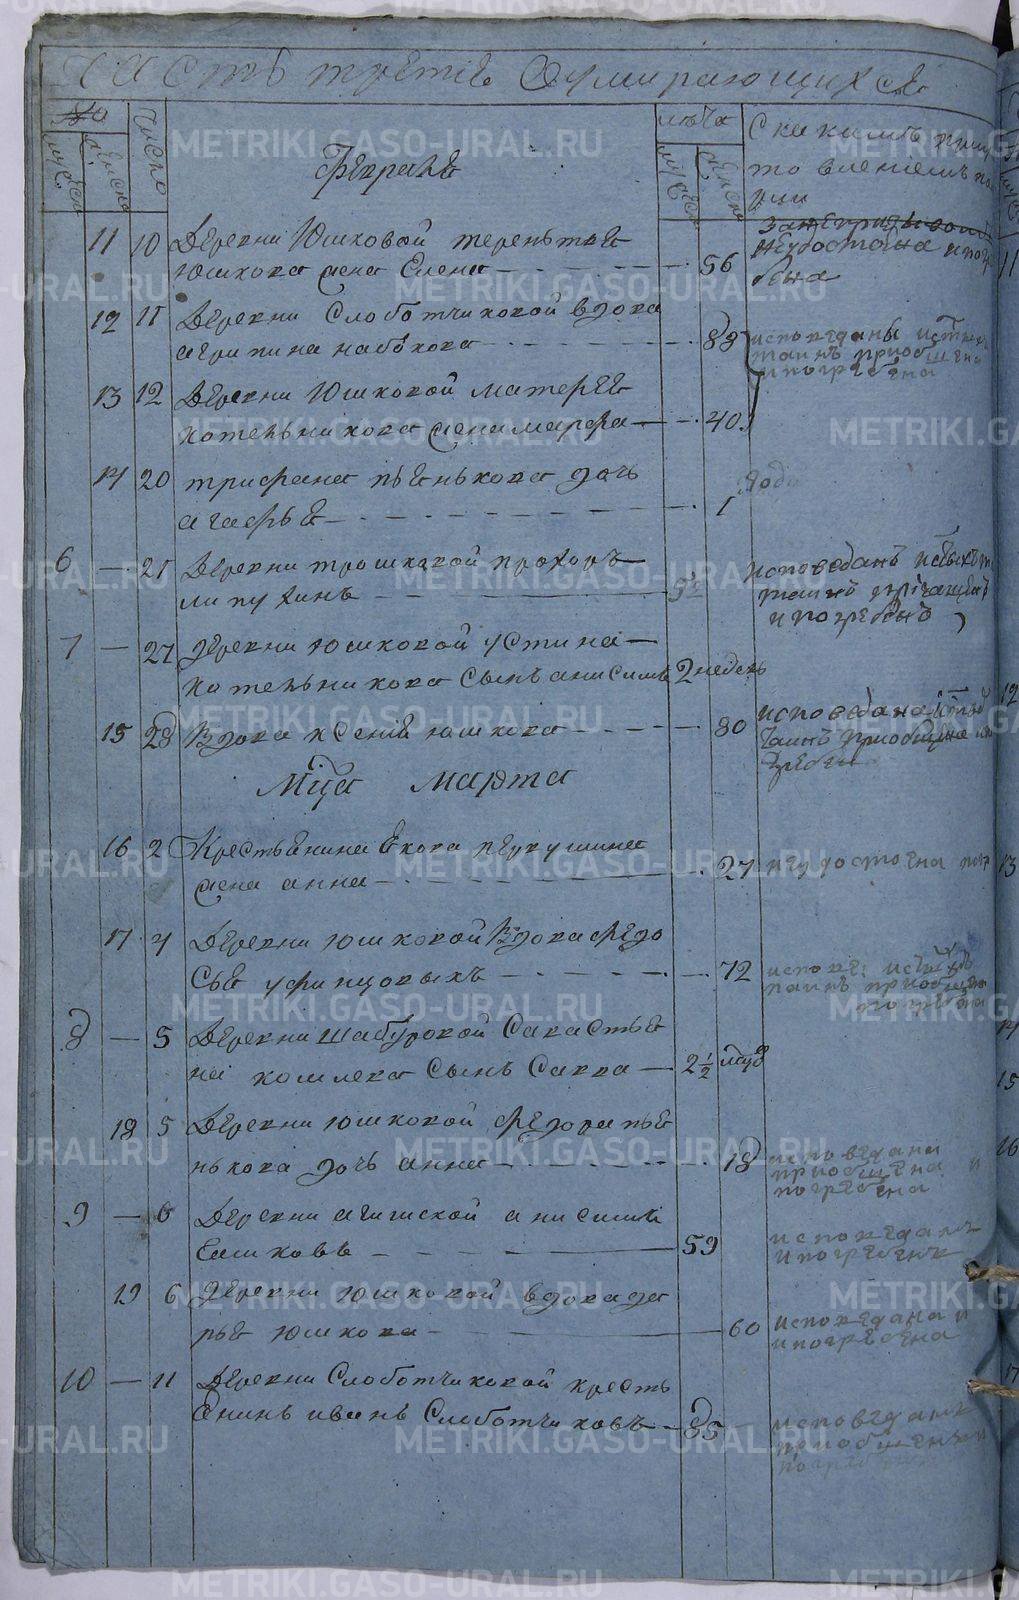 Часть третья О умирающихся
№
число
лѣта
С какимъ
муск
женска
муск
женска
Февраля
11 10 Деревни Юшковой терентья
юшкова жена Елена 56
неудостоена и погребена
12 11 Деревни Слоботчиковой вдова
агрипина набокова 83 исповеданы
таинъ приобщена
и погребена
13 12 Деревни Юшковой матфея
котельникова жена марфа 40
14 20 трифана пьянькова дочь
агафья 1 года
6 21 Деревни трошковой прохоръ
липухинъ 52 исповеданъ
таинъ
и погребенъ
7 27 деревни юшковой устина
котельникова сынъ анисимъ 2 недель
15 28 Вдова ксения юшкова 80 исповедана
таинъ приобщена
Мца марта
16 2 Крестьянина Якова певкушина
жена анна 27 неудостоена
17 4 Деревни юшковой Вдова федо
сья уфинцовыхъ 72 испове:
таинъ приобщена
погребена
8 5 Деревни шабуровой Савастья
на комлева сынъ Савва 2½
18 5 Деревни юшковой федора пья
нькова дочь анна 18 исповедана
приобщена и
погребена
9 6 Деревни ачинской анисимъ
Ешковъ 59 исповеданъ
и погребенъ
19 6 деревни юшковой вдова да
рья юшкова 60 исповедана и
и погребена
10 11 Деревни Слоботчиковой кресть
янинъ иванъ Слоботчиковъ 85 исповеданъ
приобщенъ и
METRIKI.GASO-URAL.RU